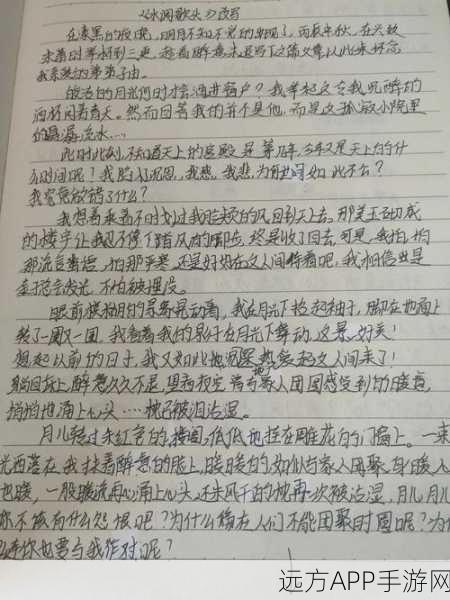 《水调歌头》改写
在漆黑的夜晚,明月不知不觉的出现了,丙辰中秋,在兴致
来着时举杯到三更,趁着醉意未退写下之篇文章以此来怀念
我亲爱的弟弟子由。
皎洁的月光何时才会洒进窗户?我举起这令我沉醉的
酒杯问着青天。然而回答我的并不是他,而是这孤寂小院里
的潺潺流水…
此时此刻,不知道天上的宫殿是第几年,今年又是天上的什
么时间呢?我陷入沉思,我想,我悲,为何如此不公?
我究竟做错了什么?
我想着乘着不时划过我脸颊的风回到天上去,那美玉砌成
的楼宇让我忍不停了踏风的脚步,终是收了回去,可是,我怕,怕
那流言蜚语,怕那严寒,还是好好在这人间待着吧,我相信也是
金子总会发光,不怕被埋没。
眼前模糊的尽寄晃动着,我在月光下挽起袖子,脚在地面上
转了一圈又一圈,我看着我的影子在月光下舞动,这景,好美!
想起以前的日子,我又如此地热爱起这人间来了!
躺回床上,醉意久久不退,思索夜空,带有家人团圆感受到的暖意
悄悄地涌上心头……枕已被泪沾湿。
月儿转过朱红色的楼阁,低低地挂在雕花的门窗上。一束
光洒落在我抹着醉意的脸上,暖暖的,如似与家人团聚,身暖,心
也暖,一股暖流再次涌上心头,还未风干的枕再次被沾湿,月儿月儿
你不该有什么怨恨吧?为什么偏在人们不能团聚时圆呢?为什
么连你也要与我作对呢?
远方APP手游网